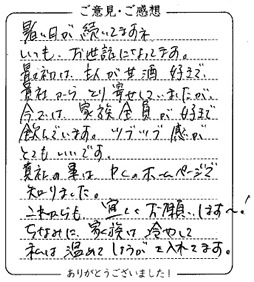 ご意見・ご感想
暑い日が続いてますネ
いつも、お世話になってます。
最初は、主人が甘酒好きで、
貴社からとり寄せしていましたが、
今では、家族全員が好きで
飲んでいます。ツブツブ感が
とてもいいです。
貴社の事は、PCのホームページで
知りました。
これからも、宜しくお願いします〜!
ちなみに、家族は冷やして
私は温めてしょうがを入れてます。
ありがとうございました!